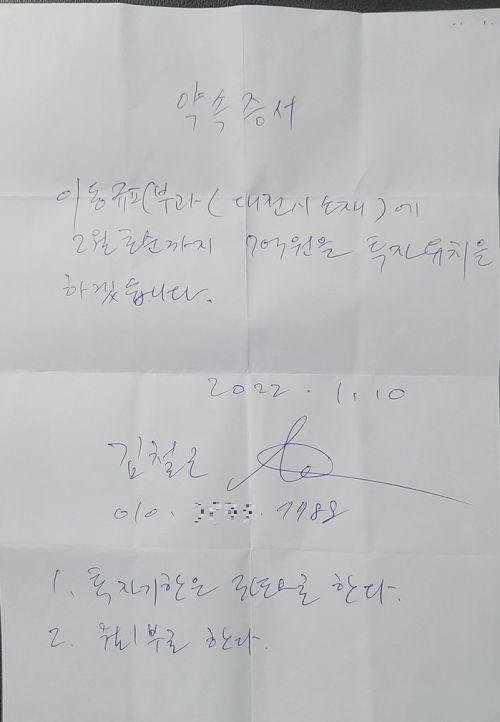 약속증서
이동규피부과(대전시소재)에
2월초순까지 7억원을 투자유치를
하겠습니다.
2022. 1. 10
김철근
010. 7788
1. 투자기한은 로 한다.
2. 한다.